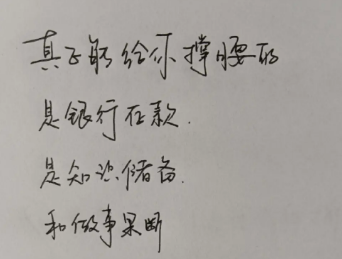 真正能给你撑腰的
是银行存款.
是知识储备.
和做事果断